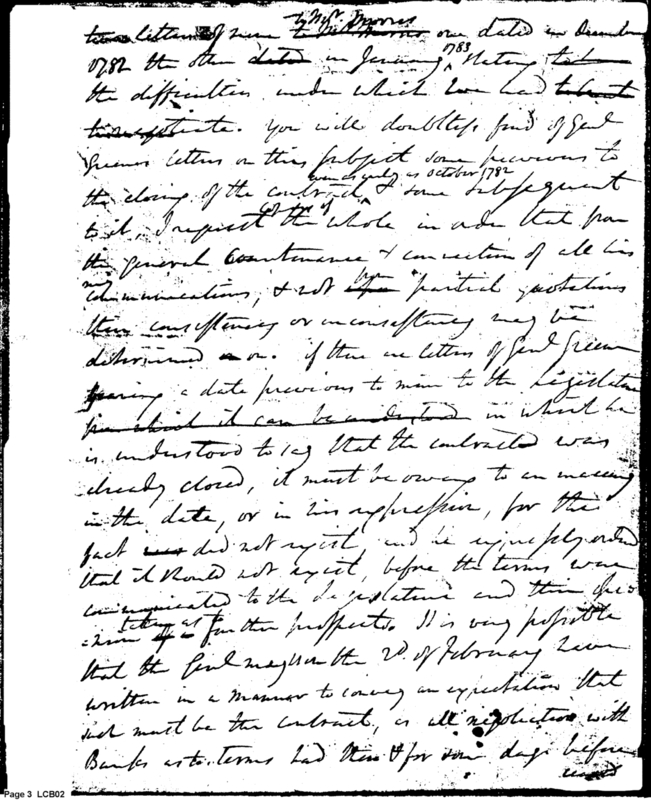 to Mr. Morris
two letters of mine to Mr Morris one dated in December
1782 the other dated in January 1783 stating to h
the difficulties under which we had to
to negotiate. You will doubtless find of Genl
Greenes letters on this subject some previous to
even as early as October 1782
the closing of the contract & some subsequent
to it, I request the whole in order that from
the general countenance & connection of all his
my
communications, & not from partial quotations
their consistency or inconsistency may be
determined on. if there are letters of Genl Greene
bearing a date previous to mine to the Legislature
from which it can be understood in which he
is understood to say that the contract was
already closed, it must be owing to an inaccuracy
in the date, or in his expression, for the
fact was did not exist, and
that it should not exist, before the terms were
communicated to the Legislature and their
taken as to
further prospects. It is very possible
that the Genl may on the 2d. of February have
written in a manner to convey an expectation that
such must be the contract, as all negotiation with
Banks as to terms had then & for some days before
ceased
Page 3 LCB02